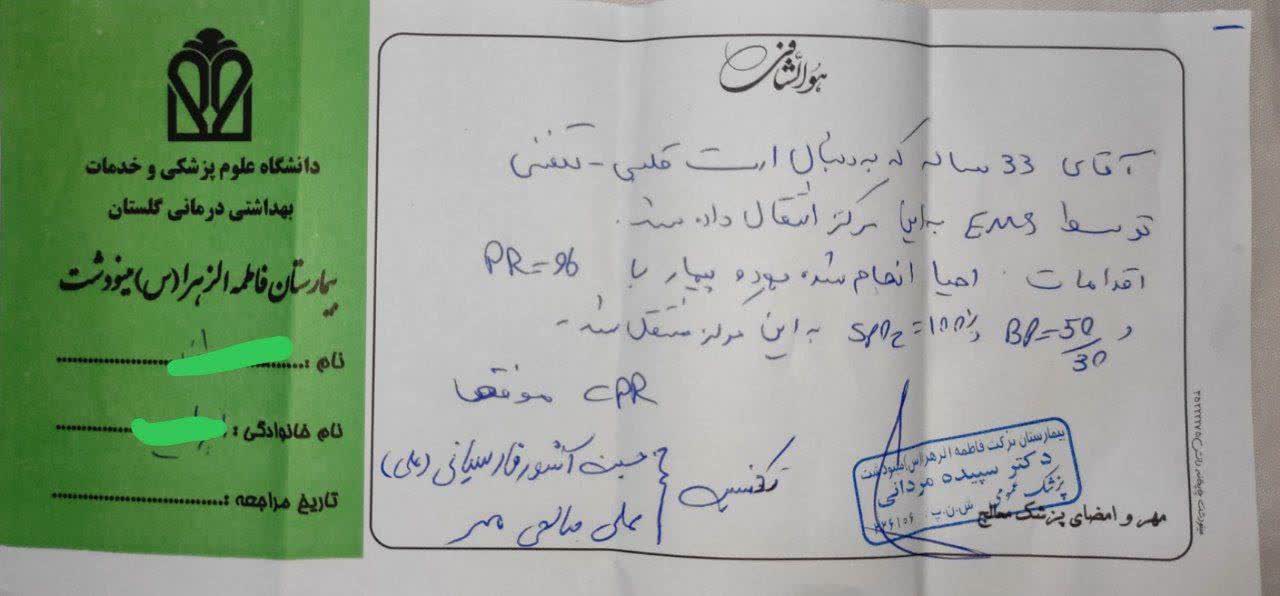 هوالشافی
آقای 33 ساله که به دنبال ارست قلبی - تنفسی
توسط EMS به این مرکز انتقال داده شد.
اقدامات احیا انجام شده بود و بیمار با PR=96
و BP=50/30 و SPO2=100% به این مرکز منتقل شد -
CPR موفقها
تکنسین
حسین آشور قارسیانی (علی)
علی صالحی مهر
بیمارستان برکت فاطمه الزهرا(س) مینودشت
دکتر سپیده مردانی
پزشک عمومی ش.ن.پ
مهر و امضای پزشک معالج
دانشگاه علوم پزشکی و خدمات
بهداشتی درمانی گلستان
بیمارستان فاطمه الزهرا(س) مینودشت
نام :
نام خانوادگی :
تاریخ مراجعه :